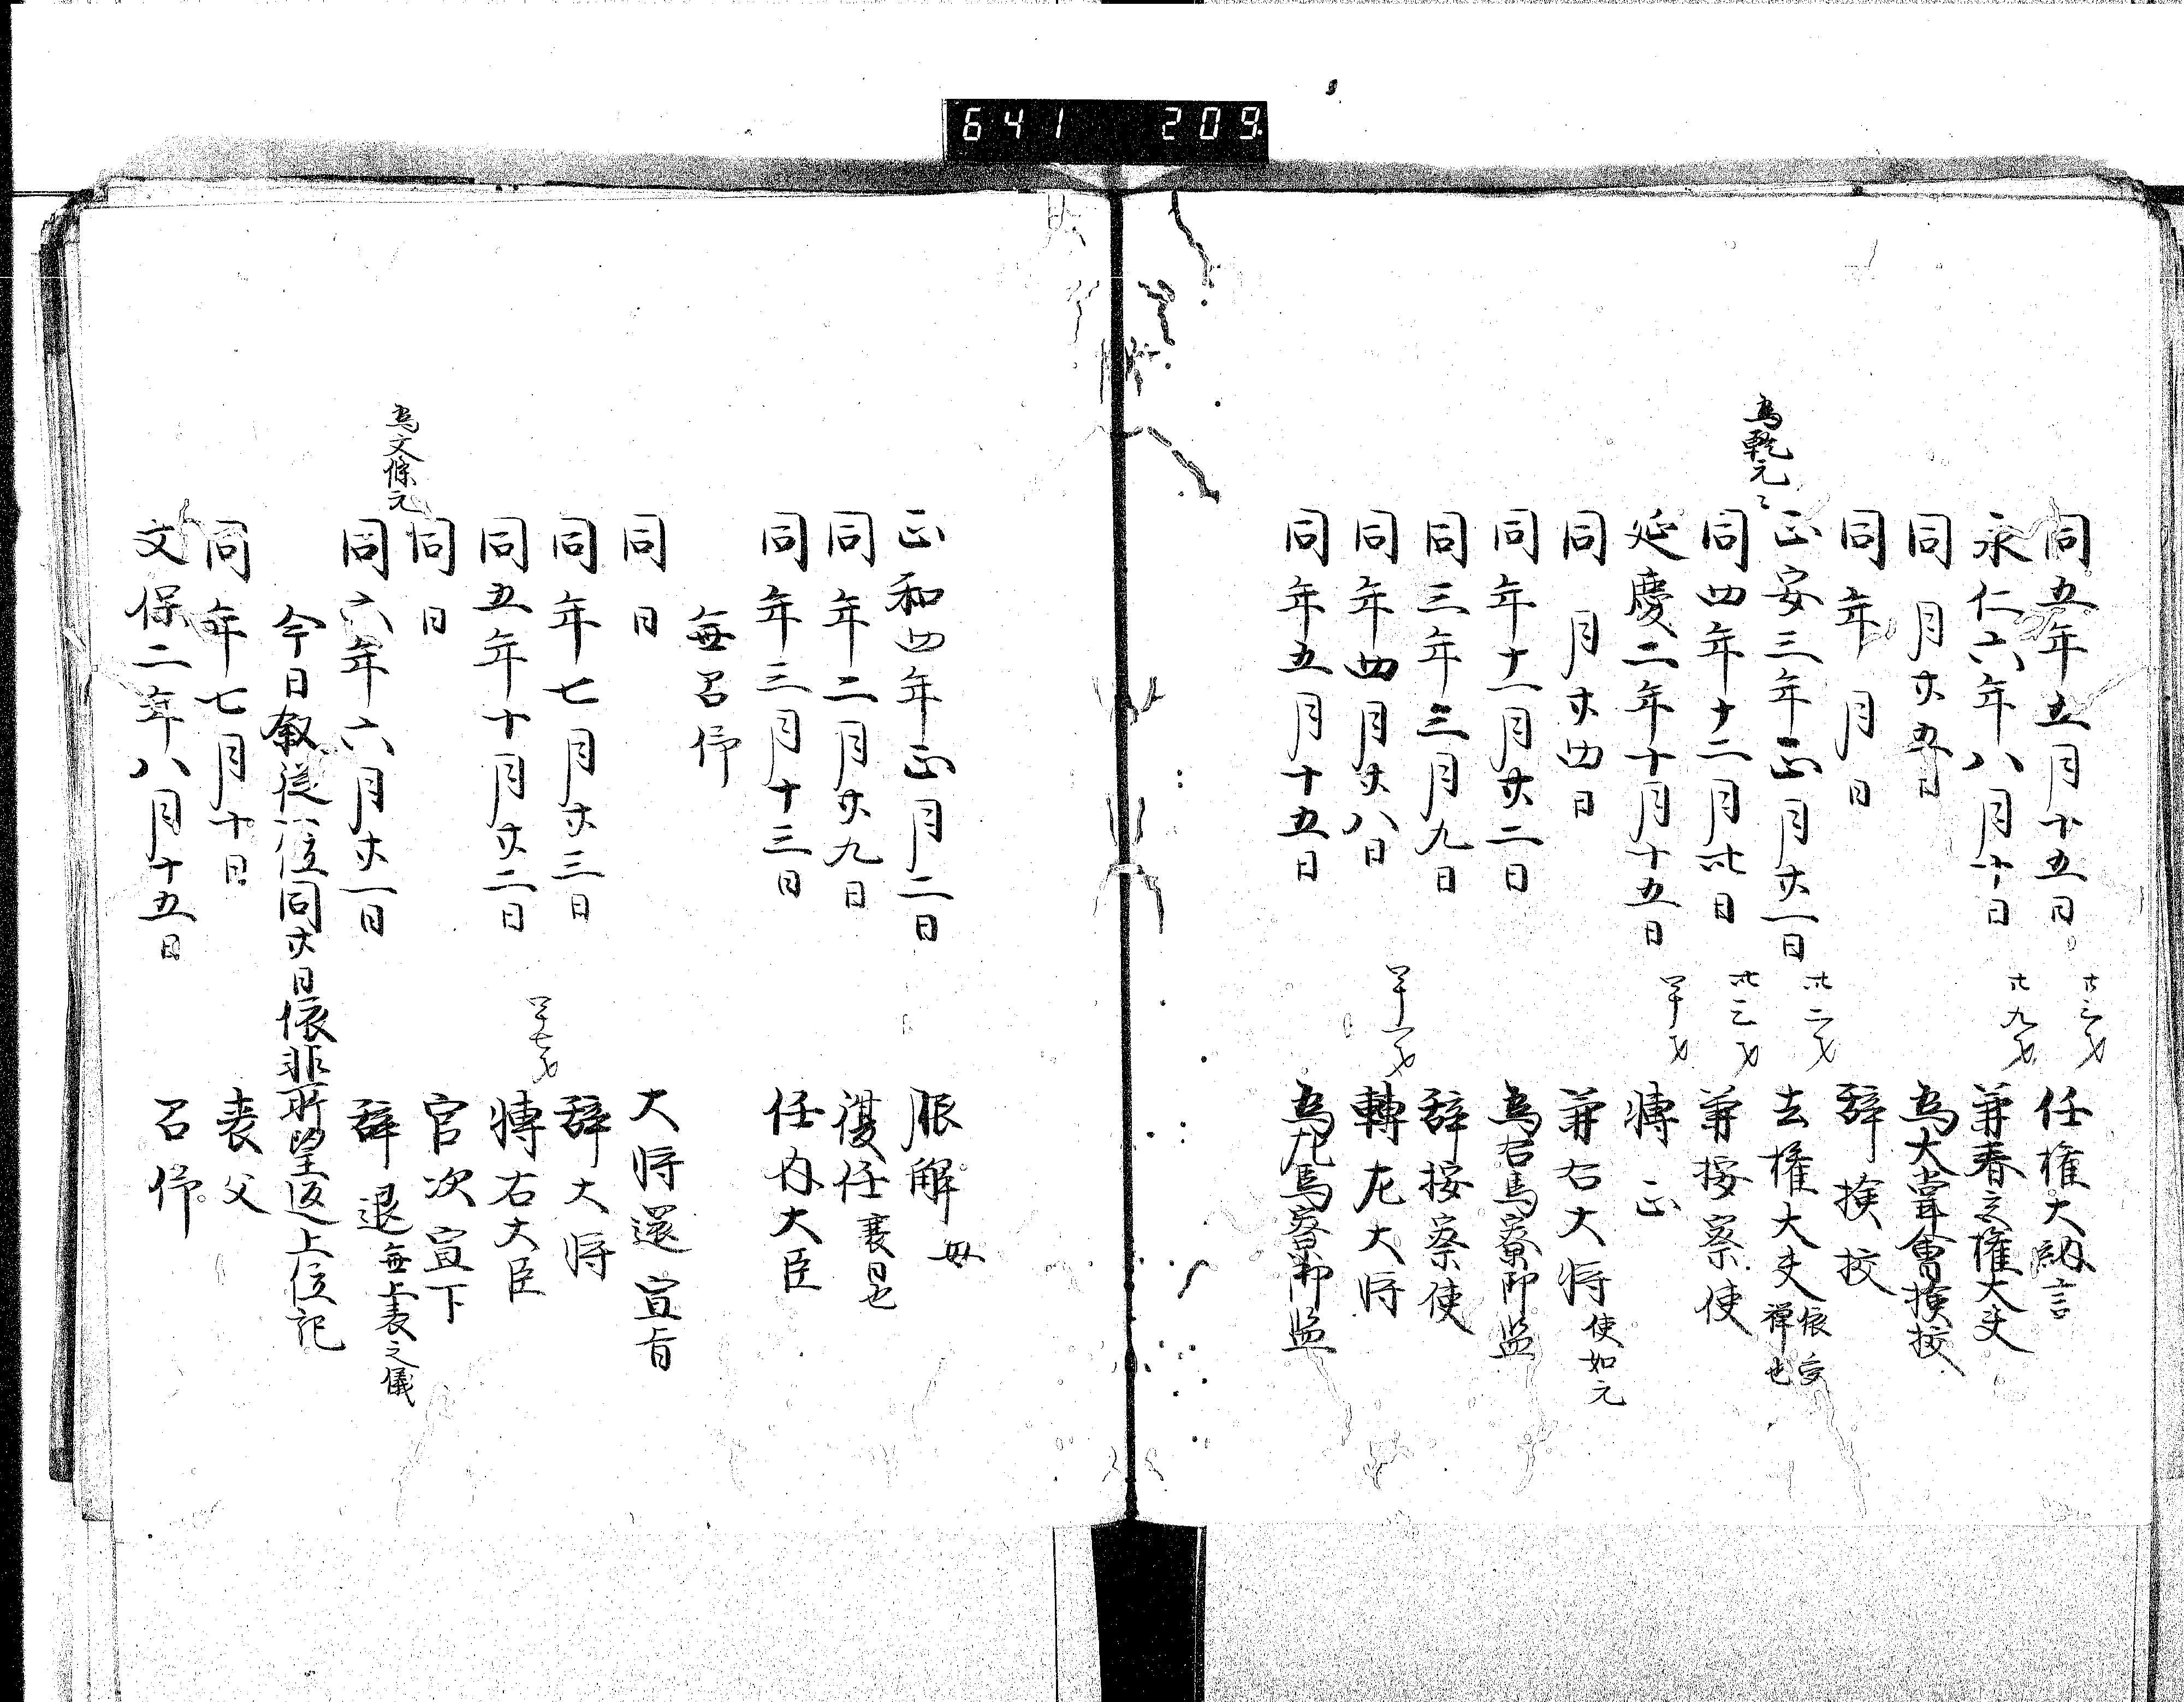 641 209
同五年五月十五日 廿三才 任権大納言
永仁六年八月十日 廿九才 兼春之権大夫
同 月廿五日 為大嘗會撿挍
同年 月 日 辞撿挍
正安三年正月廿一日 卅二才 去権大夫 依受禅也
為乾元ミ
同四年十二月卅日 卅三才 兼按察使
延慶二年十月十五日 四十才 轉正
同 月廿四日 兼右大将 使如元
同年十一月廿二日 為右馬寮御監
同三年三月九日 辞按察使
同年四月廿八日 四十一才 轉左大将
同年五月十五日 為左馬寮御監
正和四年正月二日 服解 母
同年二月廿九日 復任 襄日也
同年三月十三日 任内大臣
無召仰
同日 大将還宣旨
同年七月廿三日 辞大将
同五年十月廿二日 四十七才 轉右大臣
同日 官次宣下
為文保元
同六年六月廿一日 辞退 無上表之儀
今日叙従一位同廿日依非所望返上位記
同年七月十日 喪父
文保二年八月十五日 召仰